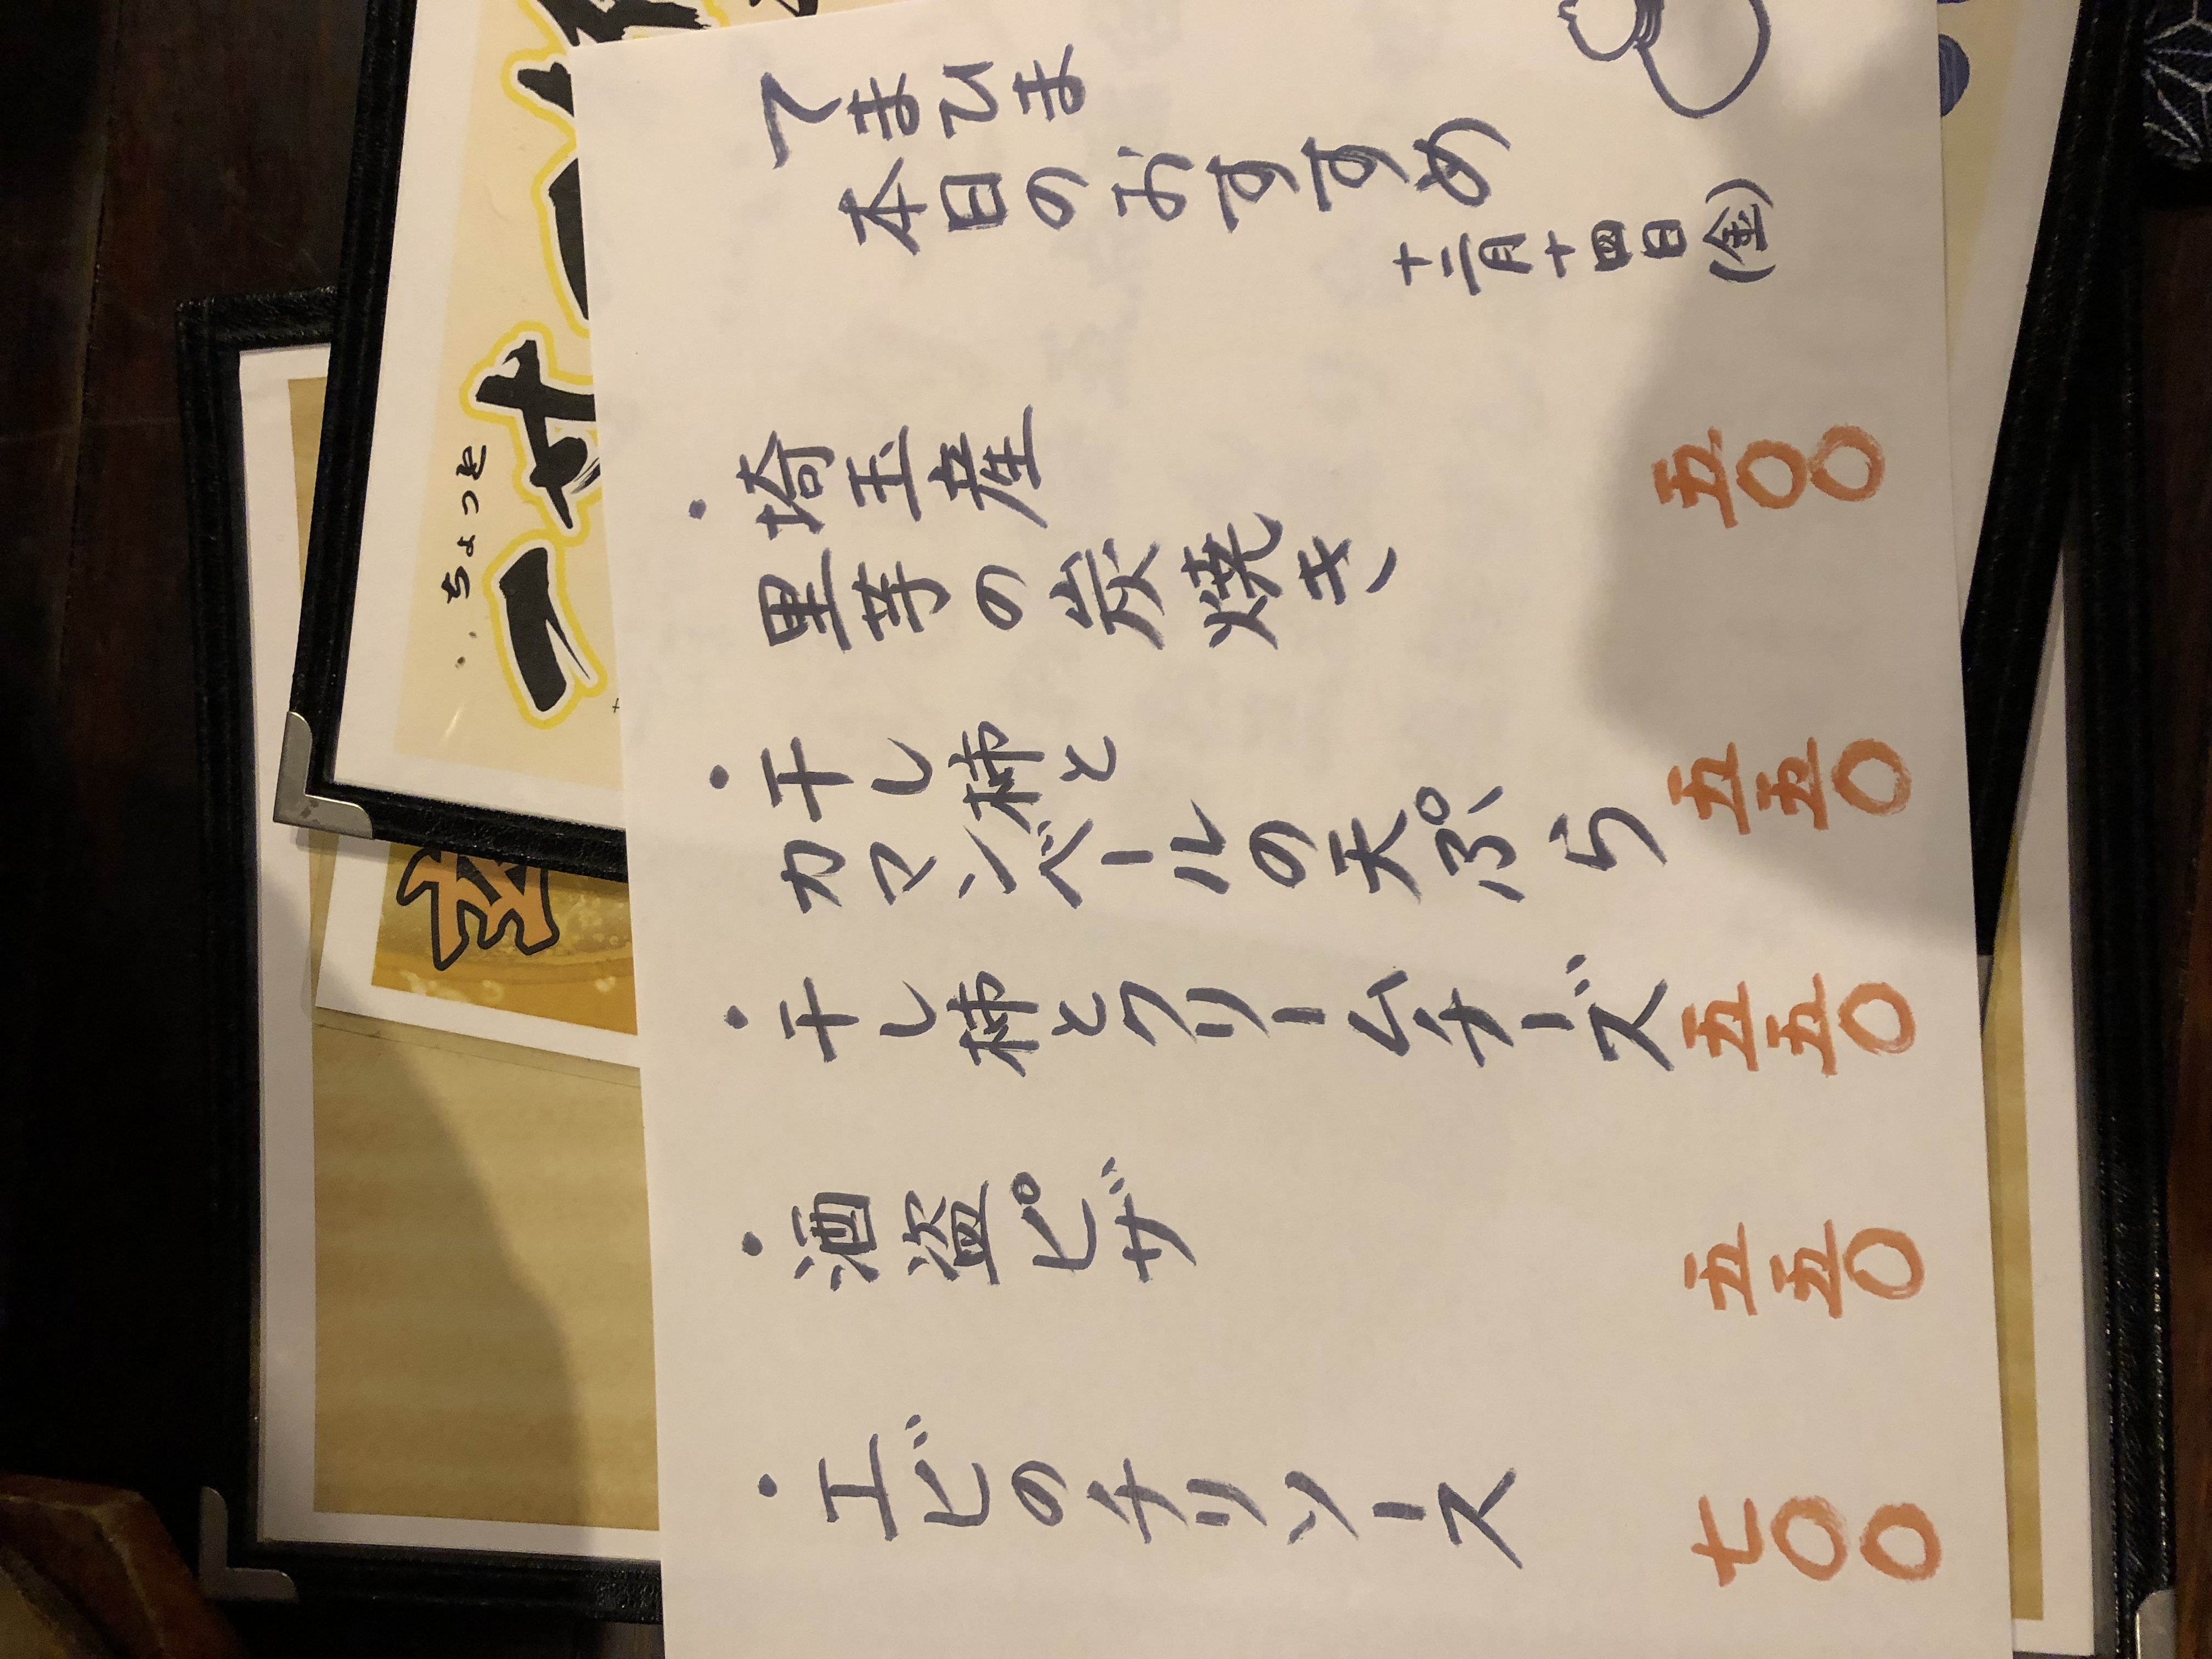 ちょっと
一寸一
てまひま
本日のおすすめ
十二月十四日(金)
・埼玉産
里芋の炭焼き
五〇〇
・干し柿と
カマンベールの天ぷら
五五〇
・干し柿とクリームチーズ
五五〇
・酒盗ピザ
五五〇
・エビのチリソース
七〇〇